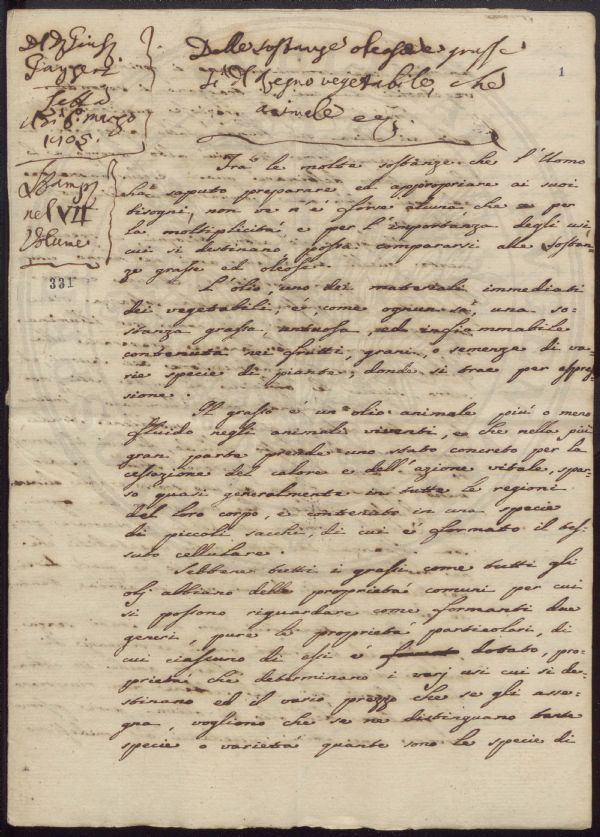 Del D. Giusp.
Gazzeri
Letta
il dì 8. marzo
1805.
Stamp.
nel VII
Volume
331
Delle sostanze oleose e grasse
sì del Regno vegetabile, che
animale
1
Tra le molte sostanze che l'Uomo
ha saputo preparare ed appropriare ai suoi
bisogni, non ve n'è forse alcuna che per
la moltiplicità, e per l'importanza degli usi,
cui si destinano possa compararsi alle sostan-
ze grasse ed oleose.
L'olio, uno dei materiali immediati
dei vegetabili, è, come ognun sà, una so-
stanza grassa, untuosa, ed infiammabile
contenuta nei frutti, grani, o semenze di va-
rie specie di piante, donde si trae per espres-
sione.
Il grasso è un olio animale più o meno
fluido negli animali viventi, e che nella più
gran parte prende uno stato concreto per la
cessazione del calore e dell'azione vitale, spar-
so quasi generalmente in tutte le regioni
del loro corpo, e contenuto in una specie
di piccoli sacchi, di cui è formato il tes-
suto cellulare.
Sebbene tutti i grassi come tutti gli
olj abbiano delle proprietà comuni per cui
si possono riguardare come formanti due
generi, pure le proprietà particolari, di
cui ciascuno di essi è dotato, pro-
prietà che determinano i varj usi cui si de-
stinano ed il vario prezzo che se gli asse-
gna, vogliono che se ne distinguano tante
specie o varietà quante sono le specie di